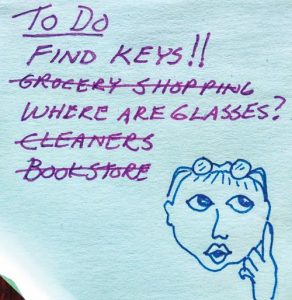 TO DO
FIND KEYS!!
GROCERY SHOPPING
WHERE ARE GLASSES?
CLEANERS
BOOKSTORE